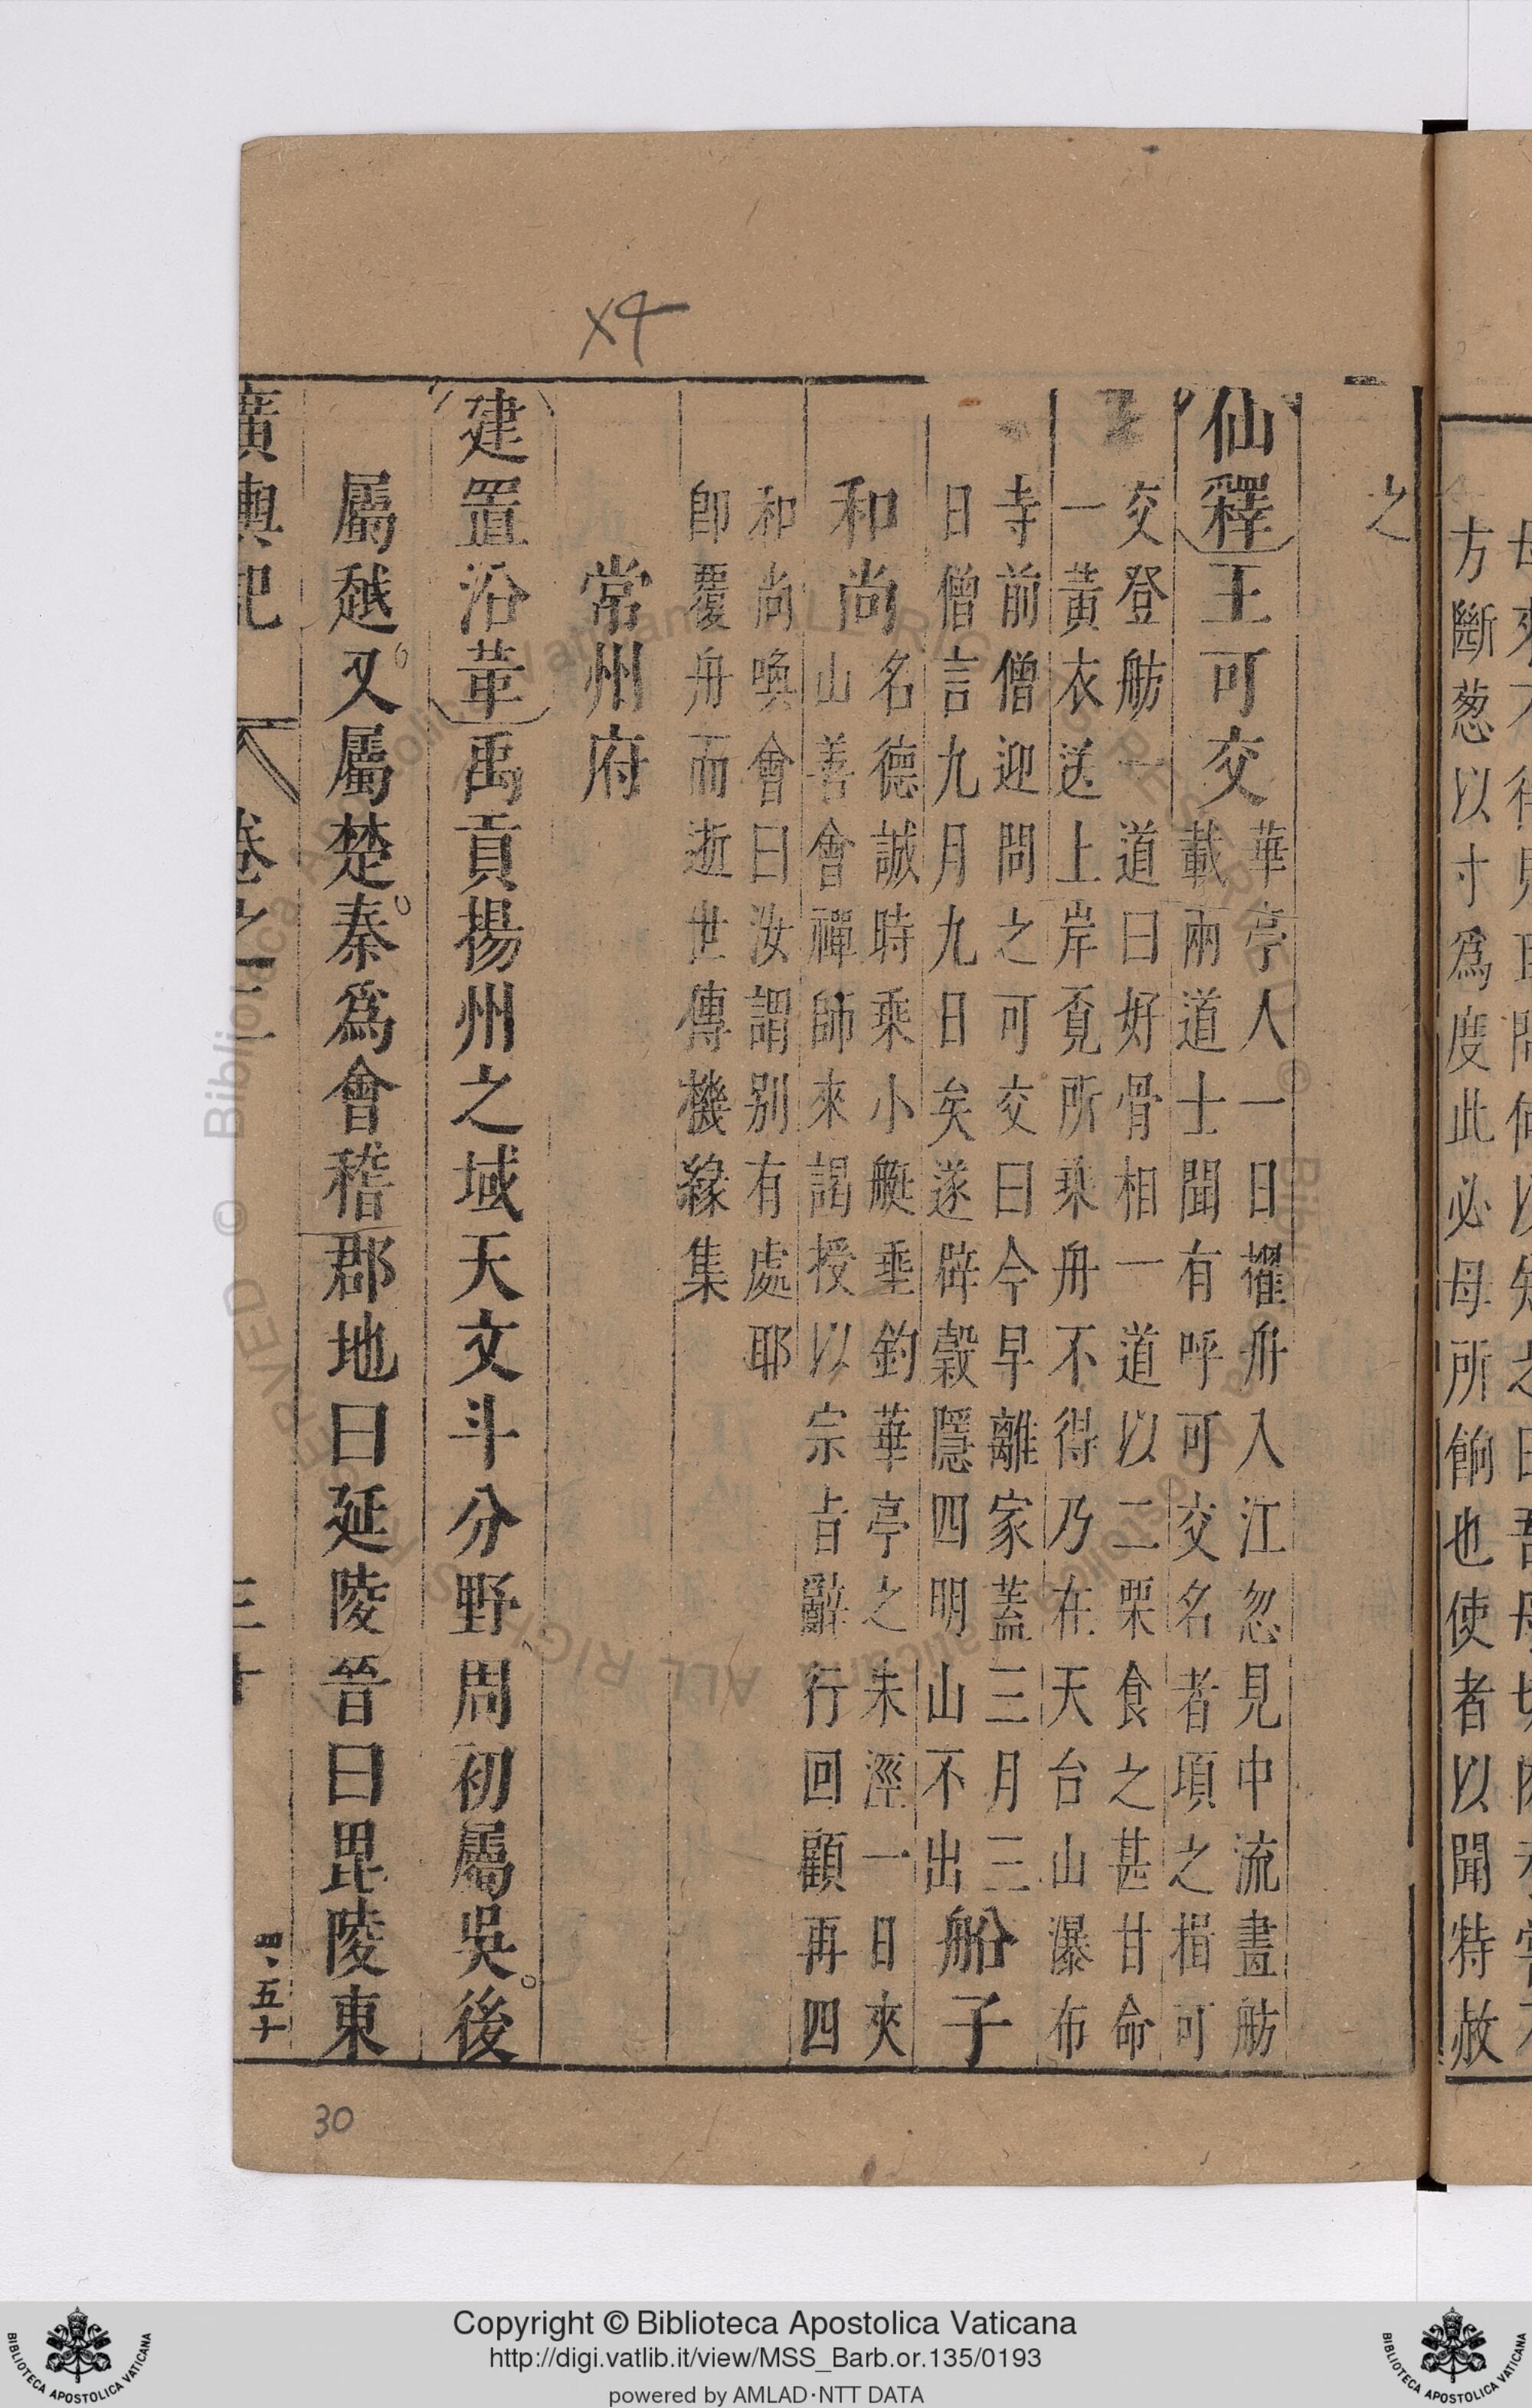 方斷葱以寸爲度此必母所餉也使者以聞特赦
之
仙釋王可交
華亭人一日擢舟入江忽見中流畫舫
載兩道士聞有呼可交名者項之揖可
交登舫一道曰好骨相一道以二栗食之甚甘命
一黃衣送上岸覔所乘舟不得乃在天台山瀑布
寺前僧迎問之可交曰今早離家蓋三月三
日僧言九月九日矣遂辟穀隱四明山不出
船子
和尚
名德誠時乘小艇垂釣華亭之朱涇一日夾
山善會禪師來謁授以宗旨辭行回顧再四
和尚喚會曰汝謂別有處耶
卽覆舟而逝世傳機緣集
常州府
建置沿革禹貢揚州之域天文斗分野周初屬吳後
屬越又屬楚秦爲會稽郡地曰延陵晉曰毘陵東
廣輿記 卷之三 三十
四五十
x4
30
Copyright © Biblioteca Apostolica Vaticana
http://digi.vatlib.it/view/MSS_Barb.or.135/0193
powered by AMLAD·NTT DATA
BIBLIOTECA APOSTOLICA VATICANA
BIBLIOTECA APOSTOLICA VATICANA